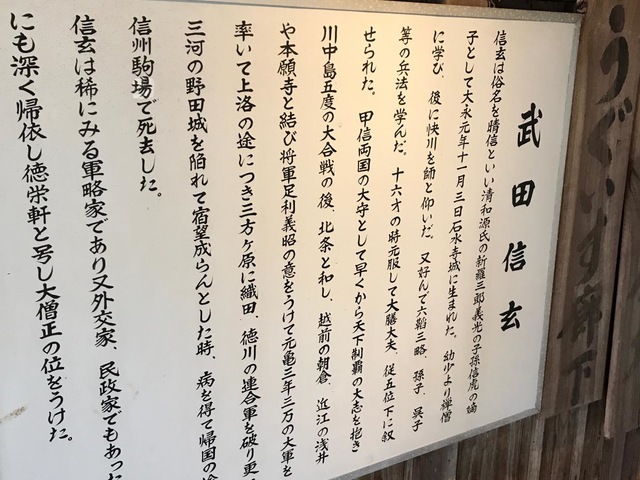 うぐいす廊下
武田信玄
信玄は俗名を晴信といい清和源氏の新羅三郎義光の子孫信虎の嫡
子として大永元年十一月三日石水寺城に生まれた。幼少より禅僧
に学び、後に快川を師と仰いだ。又好んで六韜三略、孫子、呉子
等の兵法を学んだ。十六才の時元服して大膳大夫、従五位下に叙
せられた。甲信両国の大守として早くから天下制覇の大志を抱き
川中島五度の大合戦の後、北条と和し、越前の朝倉、近江の浅井
や本願寺と結び将軍足利義昭の意をうけて元亀三年三万の大軍を
率いて上洛の途につき三方ヶ原に織田、徳川の連合軍を破り更
三河の野田城を陥れて宿望成らんとした時、病を得て帰国の
信州駒場で死去した。
信玄は稀にみる軍略家であり又外交家、民政家でもあっ
にも深く帰依し徳栄軒と号し大僧正の位をうけた。